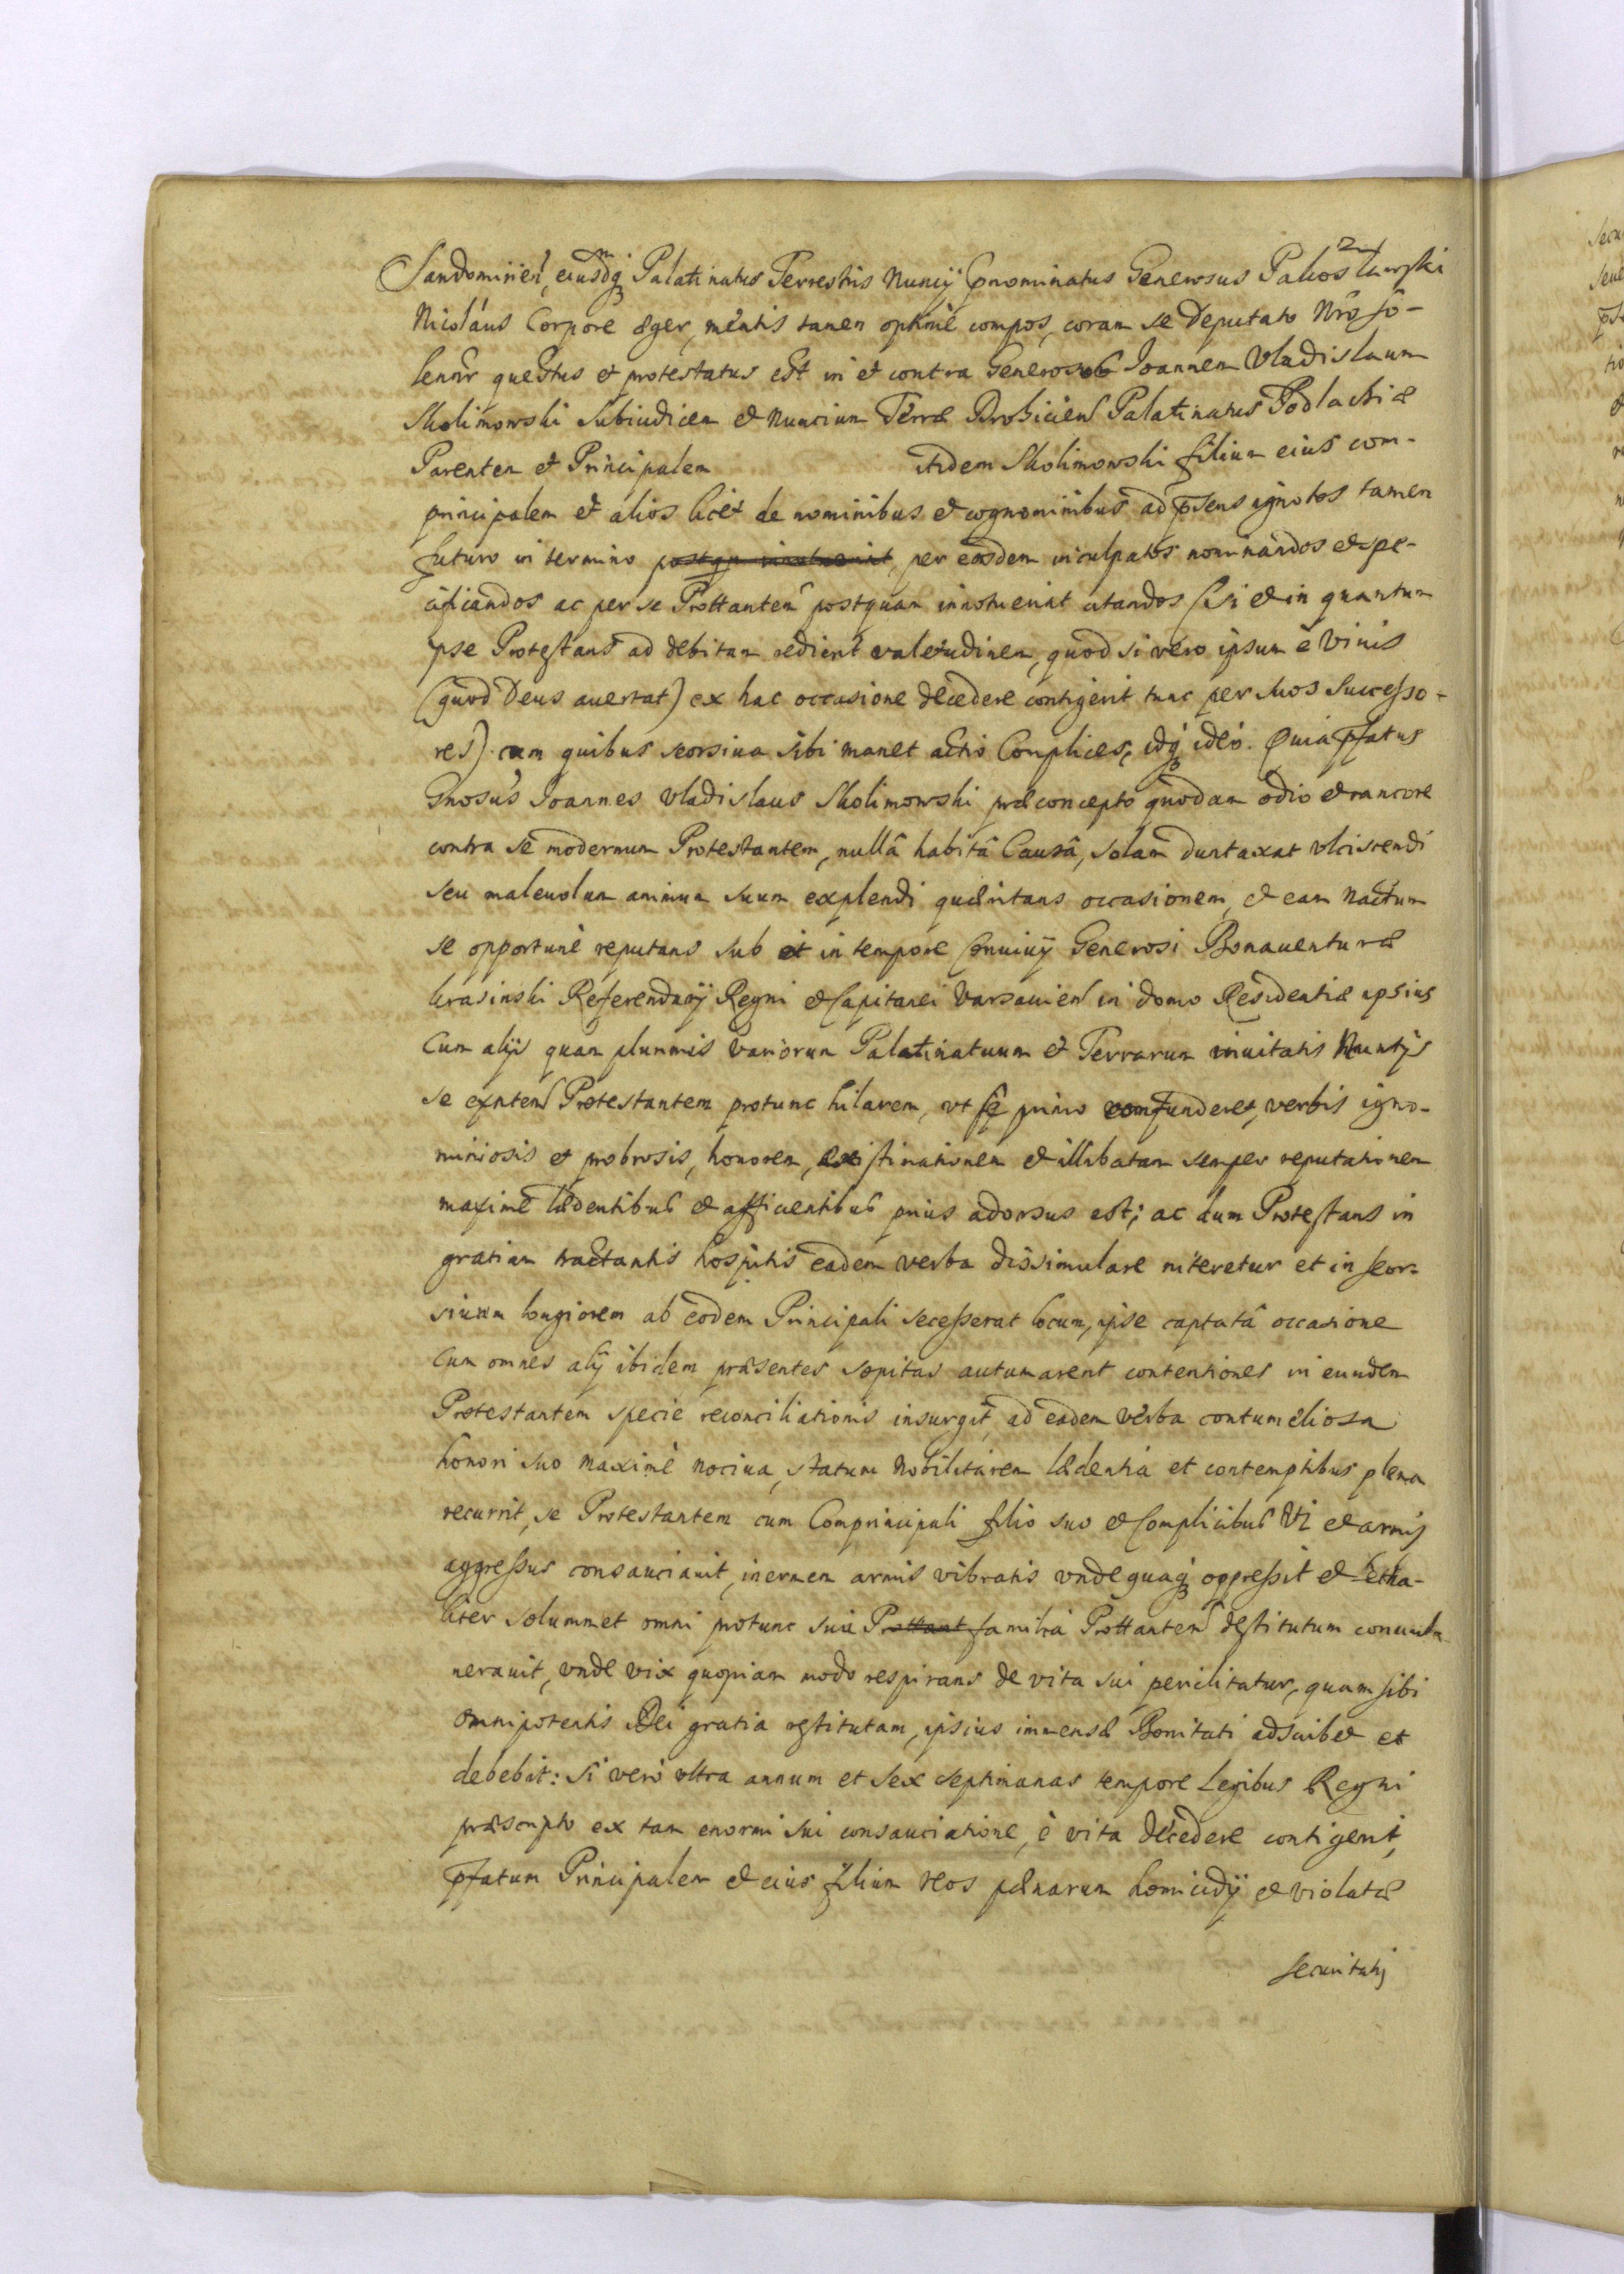 Sandomirien, eiusdemq Palatinatus Terrestris Nuncij, pnominatus Generosus Pakoszlawski
Nicolaus Corpore æger, mentis tamen optimè compos, coram se Deputato Nrõ so-
lenr questus et protestatus est in et contra Generosos Joannem Vladislaum
Skolimowski Subiudicem et Nuncium Terræ Drohicien Palatinatus Podlachiæ
Parentem et Principalem itidem Skolimowski filium eius com-
principalem et alios licet de nominibus et cognominibus ad psens ignotos tamen
futuro in termino postqm innotuerint, per eosdem inculpatos nominandos et spe-
cificandos ac per se Prottantem postquam innotuerint citandos (si et in quantum
ipse Protestans ad debitam redierit valetudinem, quod si vero ipsum è vivis
(quod Deus auertat) ex hac occasione decedere contigerit tunc per suos Successo-
res) cum quibus seorsiua sibi manet actio Complices, idq ideo. Quia pfatus
Gnosus Joannes Vladislaus Skolimowski præconcepto quodam odio et rancore
contra se modernum Protestantem, nullâ habitâ Causâ, solam duntaxat vlciscendi
seu maleuolum animum suum explendi quæritans occasionem, et eam nactum
se opportunè reputans sub et in tempore Conuiuij Generosi Bonauenturæ
Krasinski Referendarij Regni et Capitanei Varsauien in domo Residentiæ ipsius
Cum alijs quam plurimis variorum Palatinatuum et Terrarum inuitatis Nuntijs
se exnten Protestantem protunc hilarem, vt se primo confunderet, verbis igno-
miniosis et probrosis, honorem, existimationem et illibatam semper reputationem
maximè lædentibus et afficientibus prius adorsus est; ac dum Protestans in
gratiam tractantis hospitis eadem verba dissimulare niteretur et in seor-
siuum longiorem ab eodem Principali secesserat locum, ipse captatâ occasione
Cum omnes alij ibidem præsentes sopitas autumarent contentiones in eundem
Protestantem specie reconciliationis insurgit, ad eadem verba contumeliosa
honori suo maximè nociua, statum Nobilitarem lædentia et contemptibus plena
recurrit, se Protestantem cum Comprincipali filio suo et Complicibus Vi et armis
aggressus consauciauit, inermem armis vibratis vndequaq oppressit et letha-
liter solummet omni protunc suæ Prottant familia Prottantem destitutum conuul-
nerauit, vnde vix quopiam modo respirans de vita sui periclitatur, quam sibi
Omnipotentis Dei gratia restitutam, ipsius immensæ Bonitati adscribet et
debebit: Si verò vltra annum et sex septimanas tempore Legibus Regni
præscripto ex tam enormi sui consauciatione, è vita decedere contigerit,
pfatum Principalem et eius filium reos pænarum homicidij et violatæ
securitatis